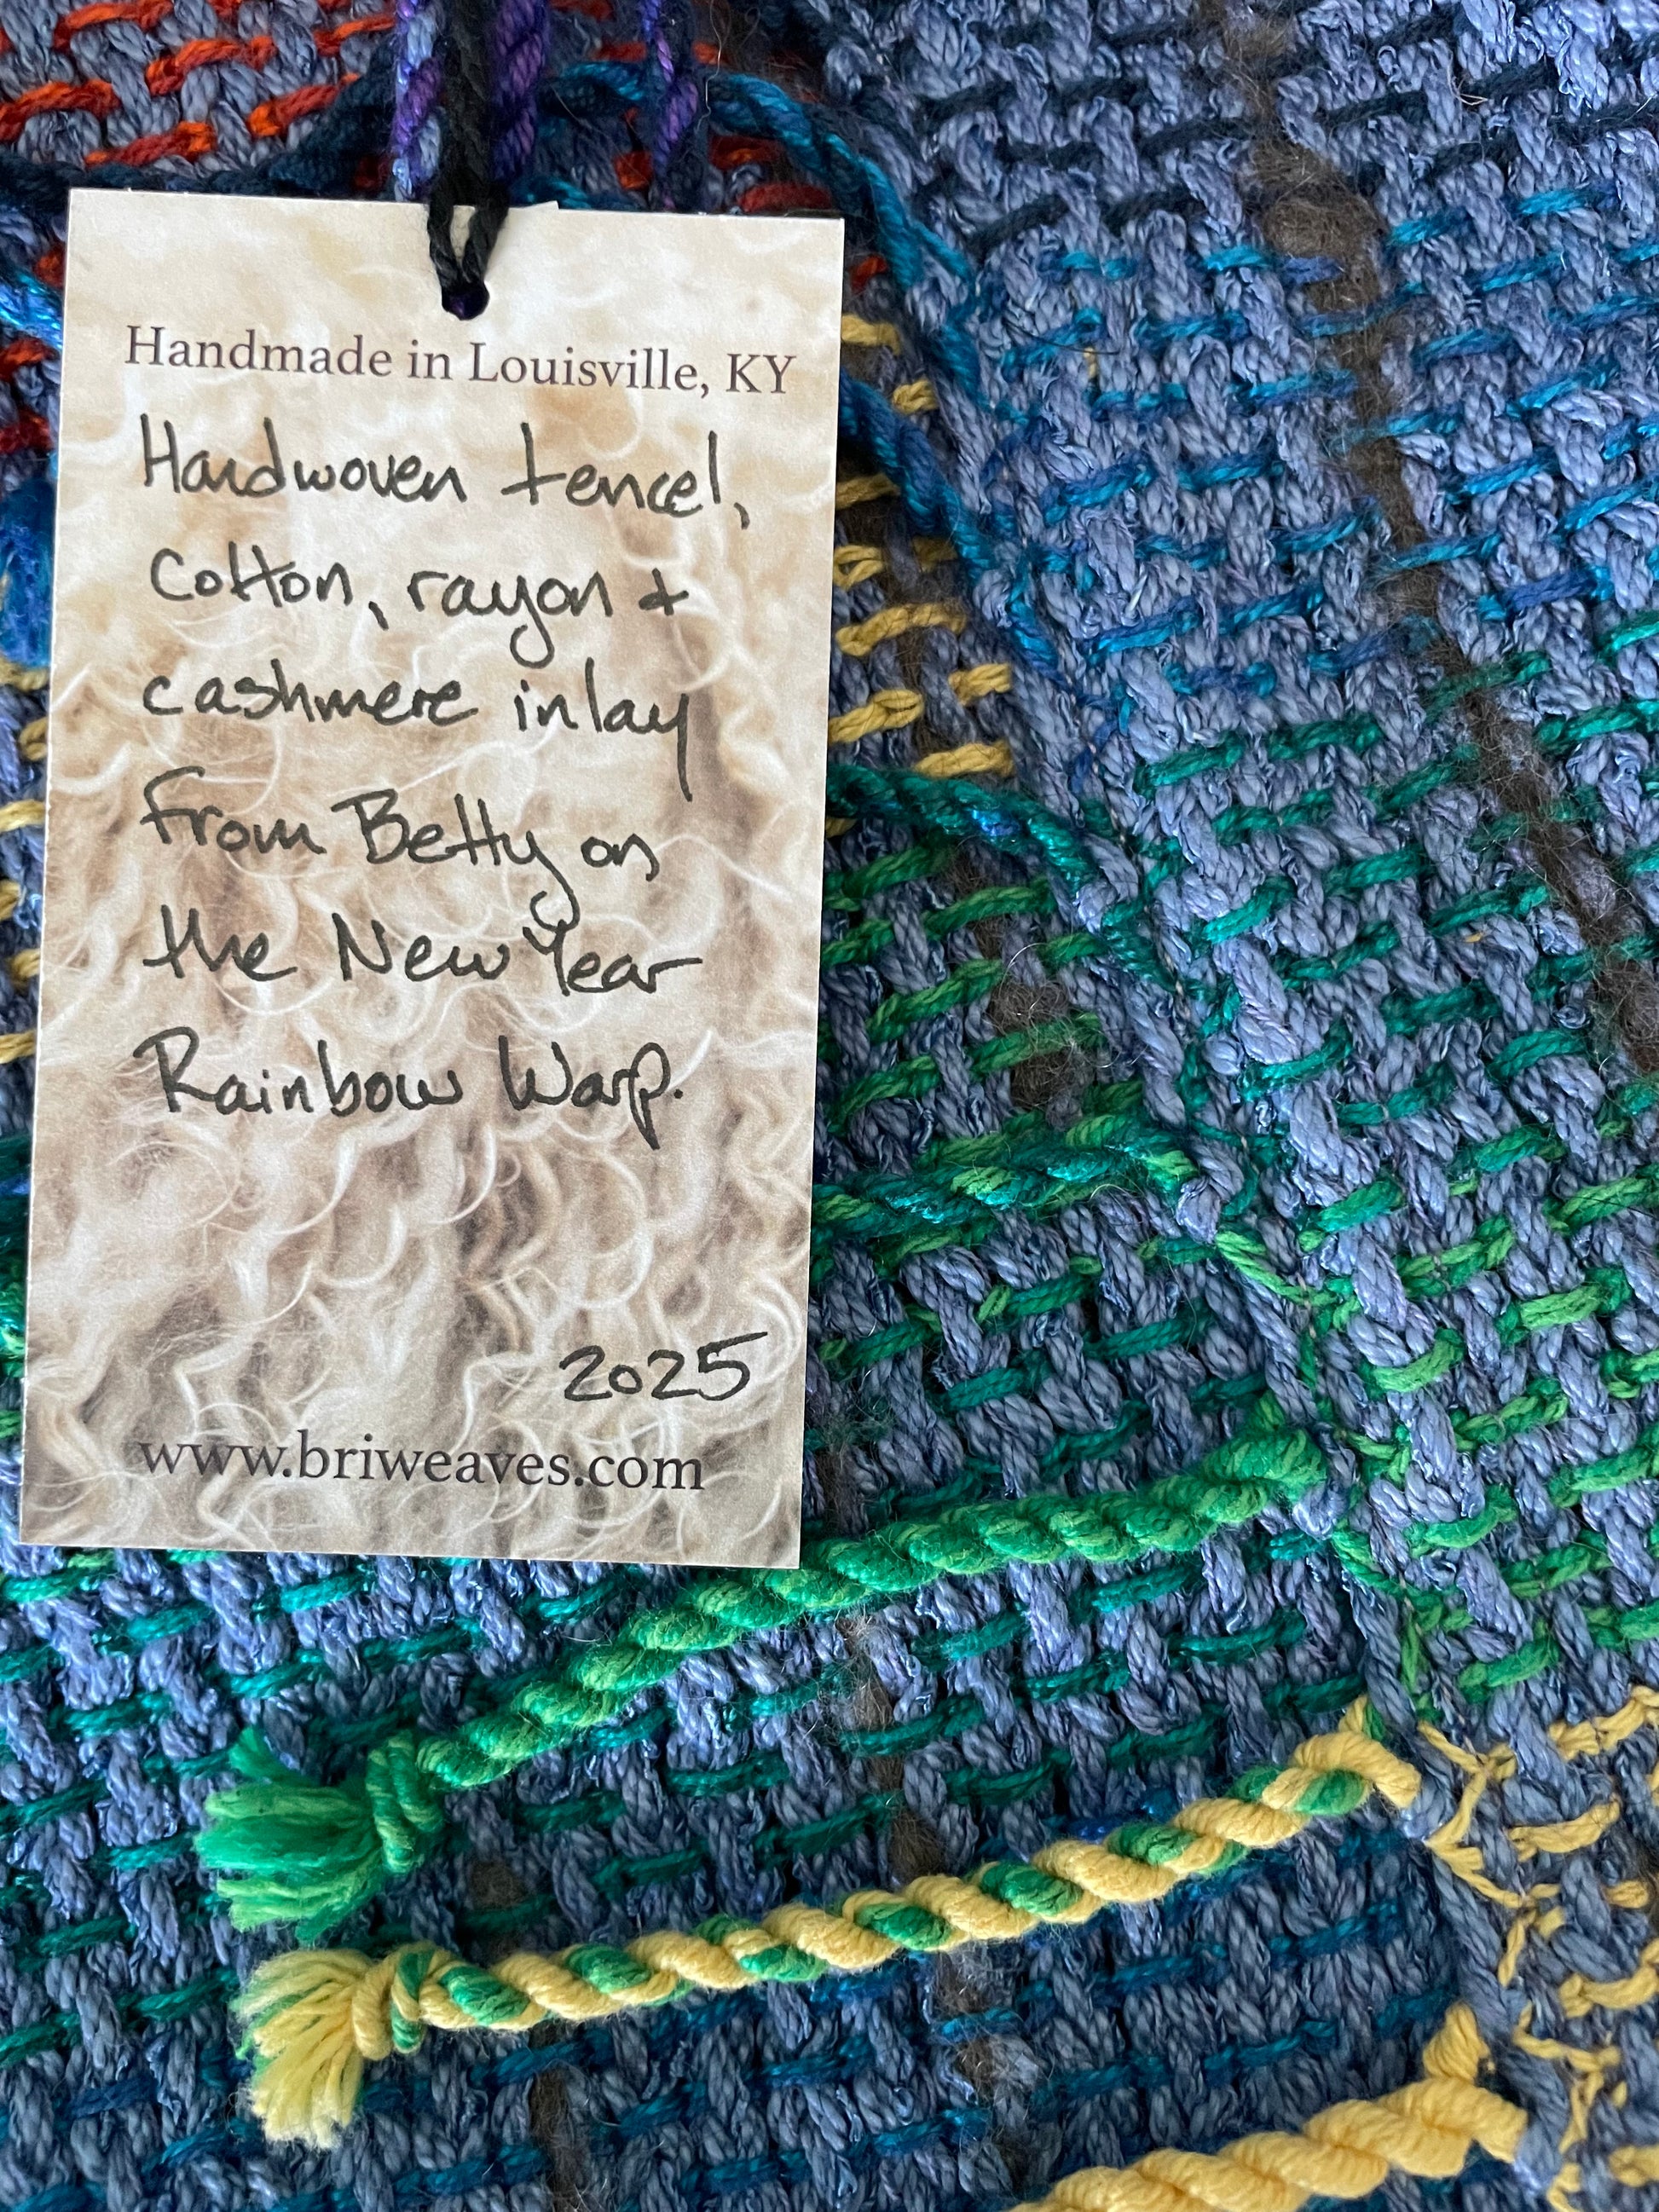 Handmade in Louisville, KY
Handwoven tencel,
cotton, rayon +
cashmere inlay
from Betty on
the New Year
Rainbow Warp.
2025
www.briweaves.com